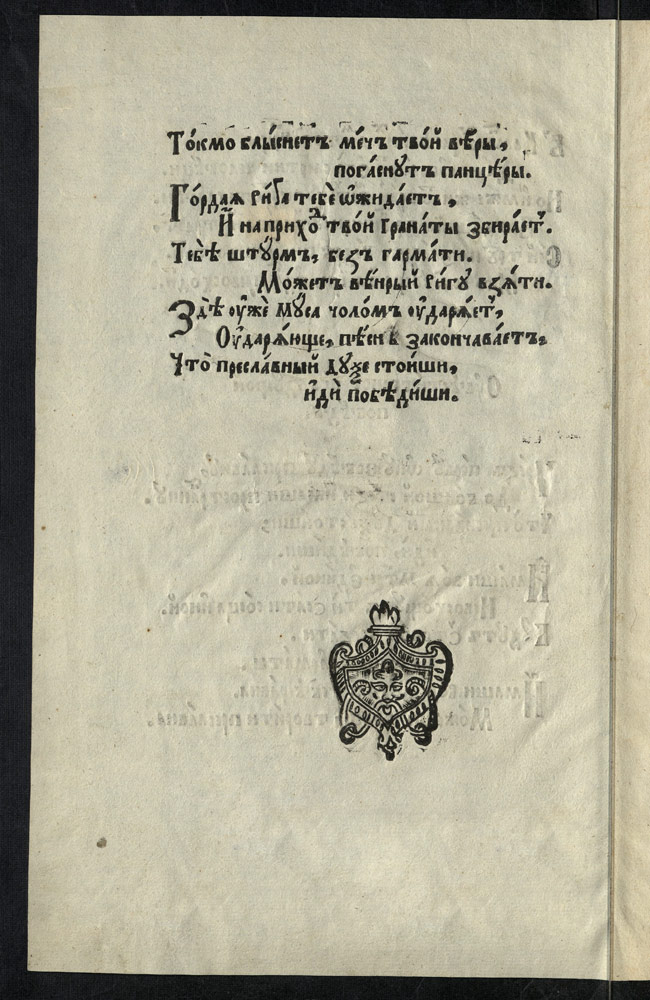 То́кмо блы́снетъ ме́чъ тво́й вѣ́ры,
пога́снутъ панцѣ́ры.
Го́рдая Ри́га тебѐ ѡ҆жида́етъ,
И҆ на прихо́ⷣ тво́й грана́ты збира́еⷮ.
Тебѣ̀ шту́рмъ, безъ гарма́ти.
Мо́жетъ вѣ́нрый Ри́гꙋ взѧ́ти.
Здѣ̀ ᲂу҆жѐ Мꙋ́са чоло́мъ ᲂу҆дарѧ́еⷮ,
Оу҆дарѧ́юще, пѣ́снь закончава́етъ.
Что̀ пресла́вный дꙋ́хе стои́ши,
и҆дѝ побѣди́ши.